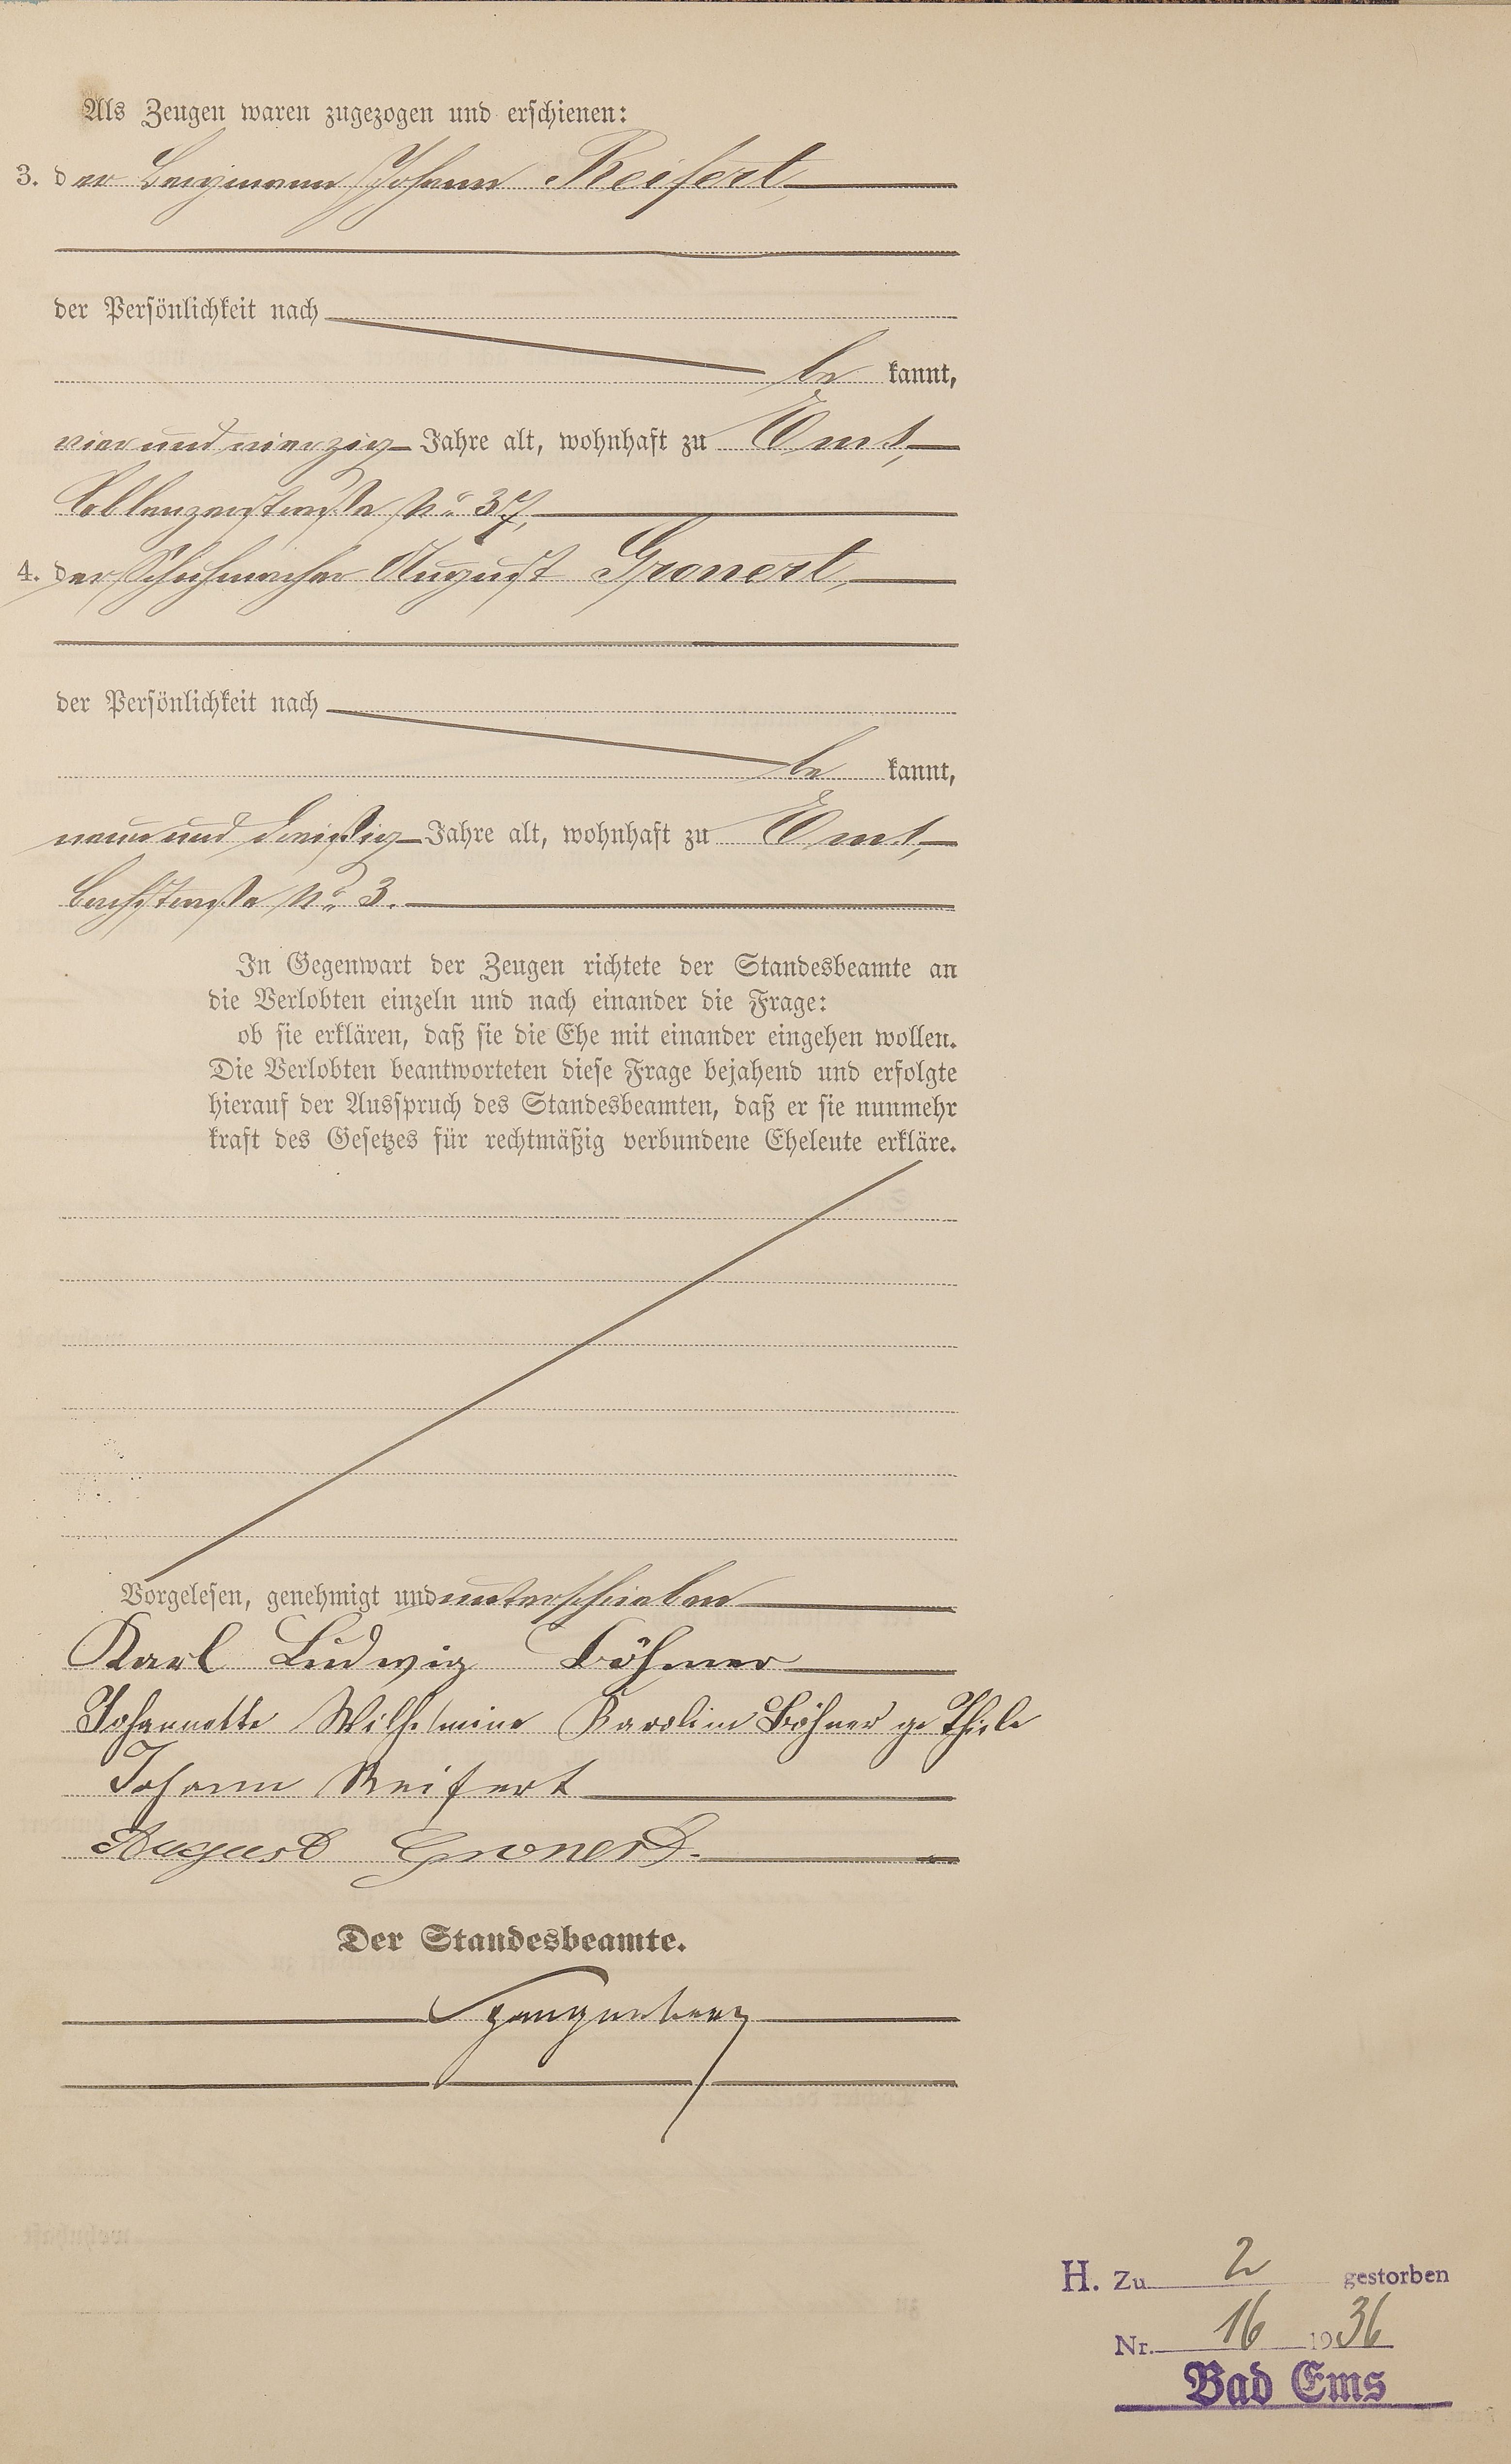 Als Zeugen waren zugezogen und erschienen:
3. der Bergmann Johann Reifert,
der Persönlichkeit nach
be kannt,
vier und vierzig Jahre alt, wohnhaft zu Ems,
Coblenzerstraße No 37,
4. der Schuhmacher August Gronert,
der Persönlichkeit nach
be kannt,
neun und dreißig Jahre alt, wohnhaft zu Ems,
Bachstraße No 3.
In Gegenwart der Zeugen richtete der Standesbeamte an
die Verlobten einzeln und nach einander die Frage:
ob sie erklären, daß sie die Ehe mit einander eingehen wollen.
Die Verlobten beantworteten diese Frage bejahend und erfolgte
hierauf der Ausspruch des Standesbeamten, daß er sie nunmehr
kraft des Gesetzes für rechtmäßig verbundene Eheleute erkläre.
Vorgelesen, genehmigt und unterschrieben
Karl Ludwig Böhmer
Johannette Wilhelmine Karoline Böhmer ge Thiele
Johann Reifert
August Gronert.
Der Standesbeamte.
Spangenberg
H. Zu 2 gestorben
Nr. 16 1936
Bad Ems